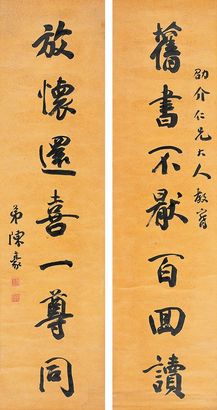 舊書不厭百回讀
劭介仁兄大人教實
放懷還喜一尊同
弟陳豪